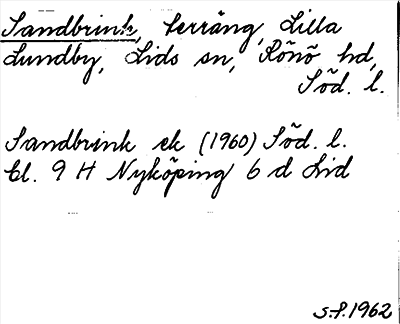 Sandbrink, terräng, Lilla
Lundby, Lids sn, Rönö hd,
Söd. l.
Sandbrink ek (1960) Söd. l.
Bl. 9 H Nyköping 6 d Lid
S.P. 1962